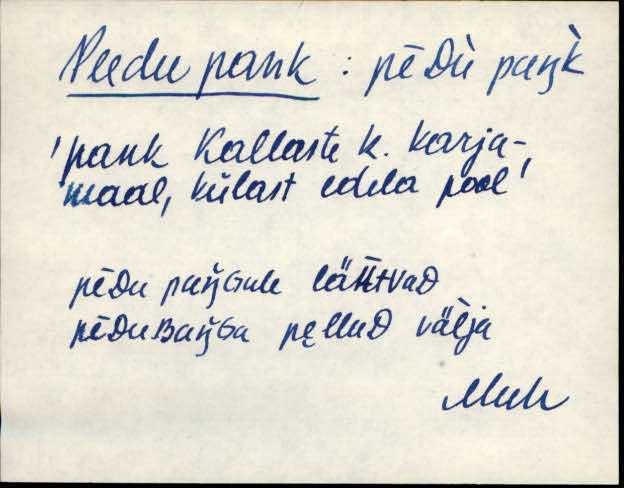 Peedu pank : pēDù paŋ̀k
'pank Kallaste k. karja-
maal, külast edela pool'
pēDu paŋGule lähävaD
pēDuBaŋGa pęlluD välja
Muh